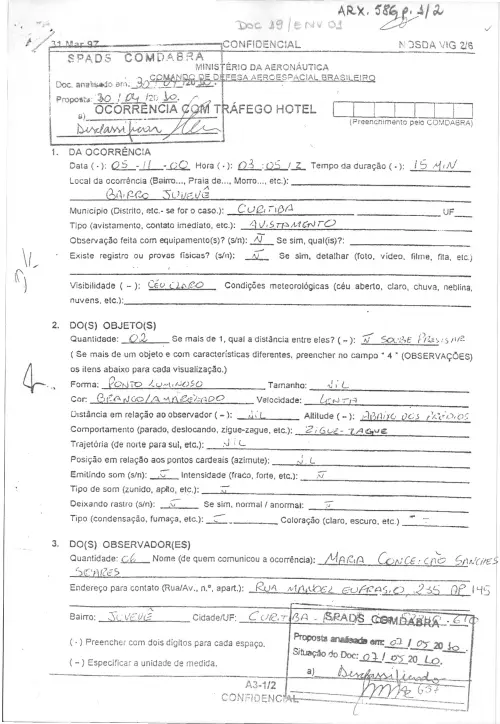 ARX. 586, p. 1/2
Doc 19/ENV 01
31 Mar 97 CONFIDENCIAL NOSDA VIG 2/6
SPADS COMDABRA
MINISTÉRIO DA AERONÁUTICA
COMANDO DE DEFESA AEROESPACIAL BRASILEIRO
Doc. analisado em: 30/04/2010.
Proposta: 30/04/2010.
OCORRÊNCIA COM TRÁFEGO HOTEL
a)
Desclassificar
(Preenchimento pelo COMDABRA)
1. DA OCORRÊNCIA
Data (·): 05-11-00 Hora (·): 03:05/Z Tempo da duração (·): 15 MIN
Local da ocorrência (Bairro..., Praia de..., Morro..., etc.):
BAIRRO JUVEVÊ
Município (Distrito, etc.- se for o caso.): CURITIBA UF
Tipo (avistamento, contato imediato, etc.): AVISTAMENTO
Observação feita com equipamento(s)? (s/n): N Se sim, qual(is)?:
Existe registro ou provas físicas? (s/n): N Se sim, detalhar (foto, vídeo, filme, fita, etc.)
Visibilidade ( – ): CÉU CLARO Condições meteorológicas (céu aberto, claro, chuva, neblina,
nuvens, etc.):
2. DO(S) OBJETO(S)
Quantidade: 02 Se mais de 1, qual a distância entre eles? ( – ): Ñ SOUBE PRECISAR
( Se mais de um objeto e com características diferentes, preencher no campo " 4 " (OBSERVAÇÕES)
os itens abaixo para cada visualização.)
Forma: PONTO LUMINOSO Tamanho: NIL
Cor: BRANCO/AMARELADO Velocidade: LENTA
Distância em relação ao observador ( – ): NIL Altitude ( – ): ABAIXO DOS PRÉDIOS
Comportamento (parado, deslocando, zigue-zague, etc.): ZIGUE-ZAGUE
Trajetória (de norte para sul, etc.): NIL
Posição em relação aos pontos cardeais (azimute): NIL
Emitindo som (s/n): N Intensidade (fraco, forte, etc.): Ñ
Tipo de som (zunido, apito, etc.): Ñ
Deixando rastro (s/n): N Se sim, normal / anormal: Ñ
Tipo (condensação, fumaça, etc.): Ñ Coloração (claro, escuro, etc.)
3. DO(S) OBSERVADOR(ES)
Quantidade: 06 Nome (de quem comunicou a ocorrência): MARIA CONCEIÇÃO SANCHES
SOARES
Endereço para contato (Rua/Av., n.º, apart.): RUA MANOEL EUFRASIO, 235 AP 145
Bairro: JUVEVÊ Cidade/UF: CURITIBA
SPADS COMDABRA
(·) Preencher com dois dígitos para cada espaço.
Proposta analisada em: 07/05 2010
Situação do Doc: 07/05 2010.
( – ) Especificar a unidade de medida.
a) Desclassificado
A3-1/2
CONFIDENCIAL